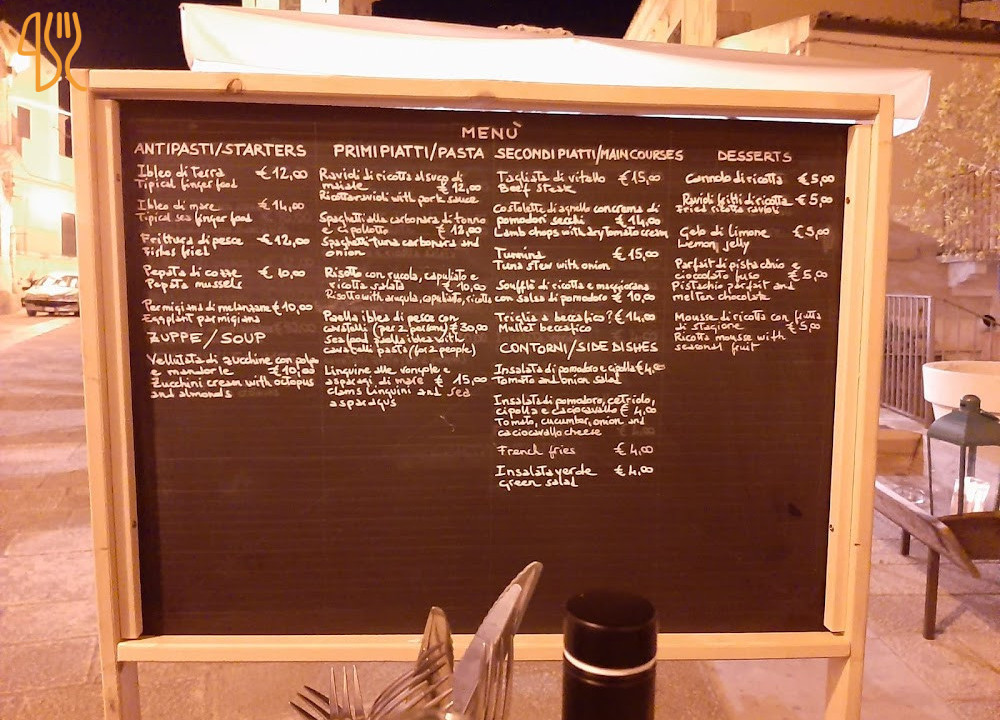 MENÙ
ANTIPASTI/STARTERS
Ibleo di Terra €12,00
Tipical finger food
Ibleo di mare €14,00
Tipical sea finger food
Frittura di pesce €12,00
Fishes fried
Pepata di cozze €10,00
Pepata mussels
Parmigiana di melanzane €10,00
Eggplant parmigiana
ZUPPE/SOUP
Vellutata di zucchine con polpo
e mandorle €10,00
Zucchini cream with octopus
and almonds
PRIMI PIATTI/PASTA
Ravioli di ricotta al sugo di
maiale €12,00
Ricotta ravioli with pork sauce
Spaghetti alla carbonara di tonno
e cipollotto €12,00
Spaghetti tuna carbonara and
onion
Risotto con rucola, capuliato e
ricotta salata €10,00
Risotto with arugula, capuliato, ricotta
Paella iblea di pesce con
cavatelli (per 2 persone) €30,00
sea food paella iblea with
cavatelli pasta (for 2 people)
Linguine alle vongole e
asparagi di mare € 15,00
clams linguini and sea
asparagus
SECONDI PIATTI/MAIN COURSES
Tagliata di vitello €15,00
Beef steak
Costolette di agnello con crema di
pomodori secchi €14,00
Lamb chops with dry tomato cream
Tunnina €15,00
Tuna stew with onion
Soufflè di ricotta e maggiorana
con salsa di pomodoro € 10,00
Triglia a beccafico? €14,00
Mullet beccafico
CONTORNI/SIDE DISHES
Insalata di pomodoro e cipolla €4,00
Tomato and onion salad
Insalata di pomodoro, cetriolo,
cipolla e caciocavallo € 4,00
Tomato, cucumber, onion and
caciocavallo cheese
French fries €4,00
Insalata verde €4,00
green salad
DESSERTS
Cannolo di ricotta €5,00
Ravioli fritti di ricotta €5,00
Fried ricotta ravioli
Gelo di limone €5,00
Lemon jelly
Parfait di pistacchio e
cioccolato fuso €5,00
Pistachio parfait and
melten chocolate
Mousse di ricotta con frutta
di stagione €5,00
Ricotta mousse with
seasonal fruit